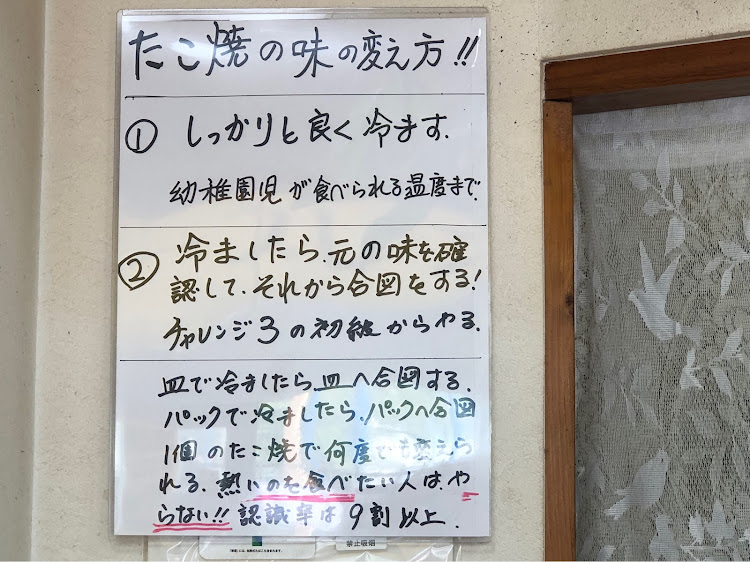 たこ焼の味の変え方!!
① しっかりと良く冷ます.
幼稚園児が食べられる温度まで.
② 冷ましたら.元の味を確
認して、それから合図をする!
チャレンジ3の初級からやる.
皿で冷ましたら皿へ合図する.
パックで冷ましたら、パックへ合図
1個のたこ焼で何度でも変えら
れる.熱いのを食べたい人は、や
らない!!認識率は9割以上.
禁止吸烟